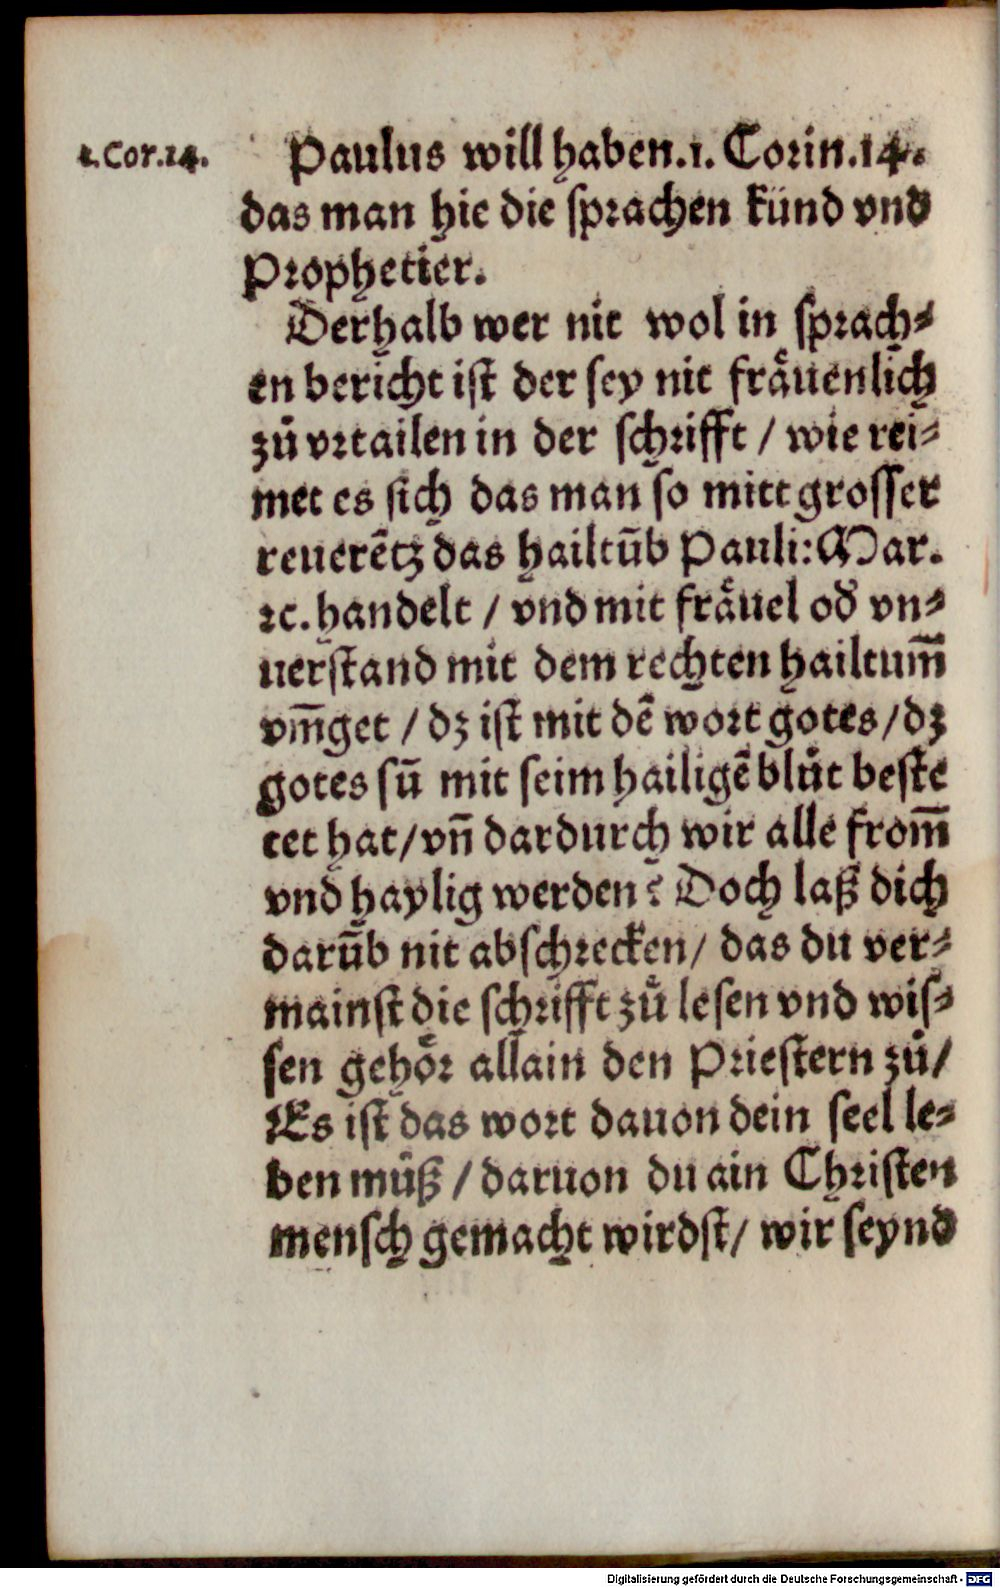 1.Cor.14.
Paulus will haben.1. Corin.14.
das man hie die sprachen künd vnd
Prophetier.
Derhalb wer nit wol in sprach⸗
en bericht ist der sey nit fräuenlich
zů vrtailen in der schrifft / wie rei⸗
met es sich das man so mitt grosser
reuerētz das hailtūb Pauli: Mar.
ꝛc. handelt / vnd mit fräuel od̕ vn⸗
uerstand mit dem rechten hailtum̄
vm̄get / dz ist mit dē wort gotes / dz
gotes sū mit seim hailigē blůt beste
tet hat / vn̄ dardurch wir alle from̄
vnd haylig werden? Doch laß dich
darūb nit abschrecken / das du ver⸗
mainst die schrifft zů lesen vnd wis⸗
sen gehör allain den Priestern zů /
Es ist das wort dauon dein seel le⸗
ben můß / daruon du ain Christen
mensch gemacht wirdst / wir seynd
Digitalisierung gefördert durch die Deutsche Forschungsgemeinschaft - DFG